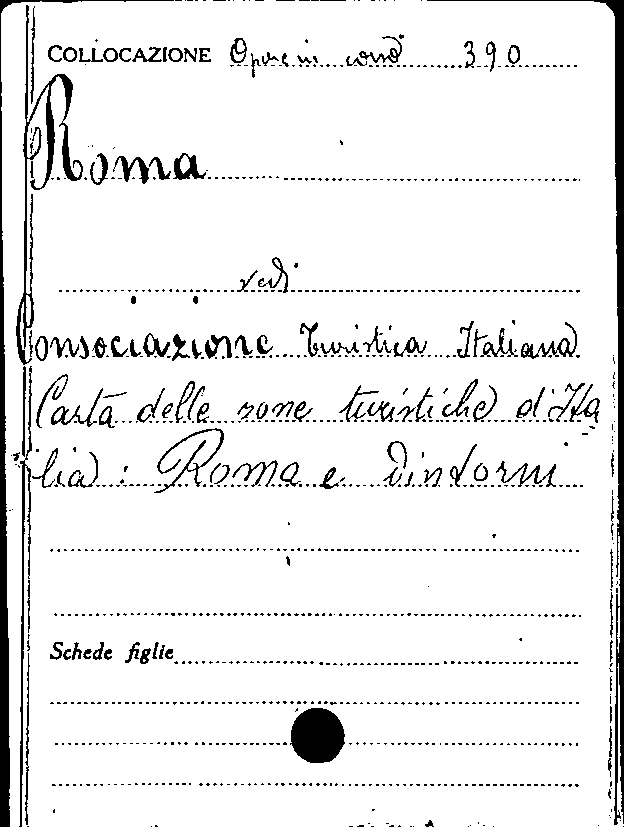 COLLOCAZIONE Opere in cons 390
Roma
vedi
Consociazione Turistica Italiana
Carta delle zone turistiche d'Ita
lia: Roma e dintorni
Schede figlie